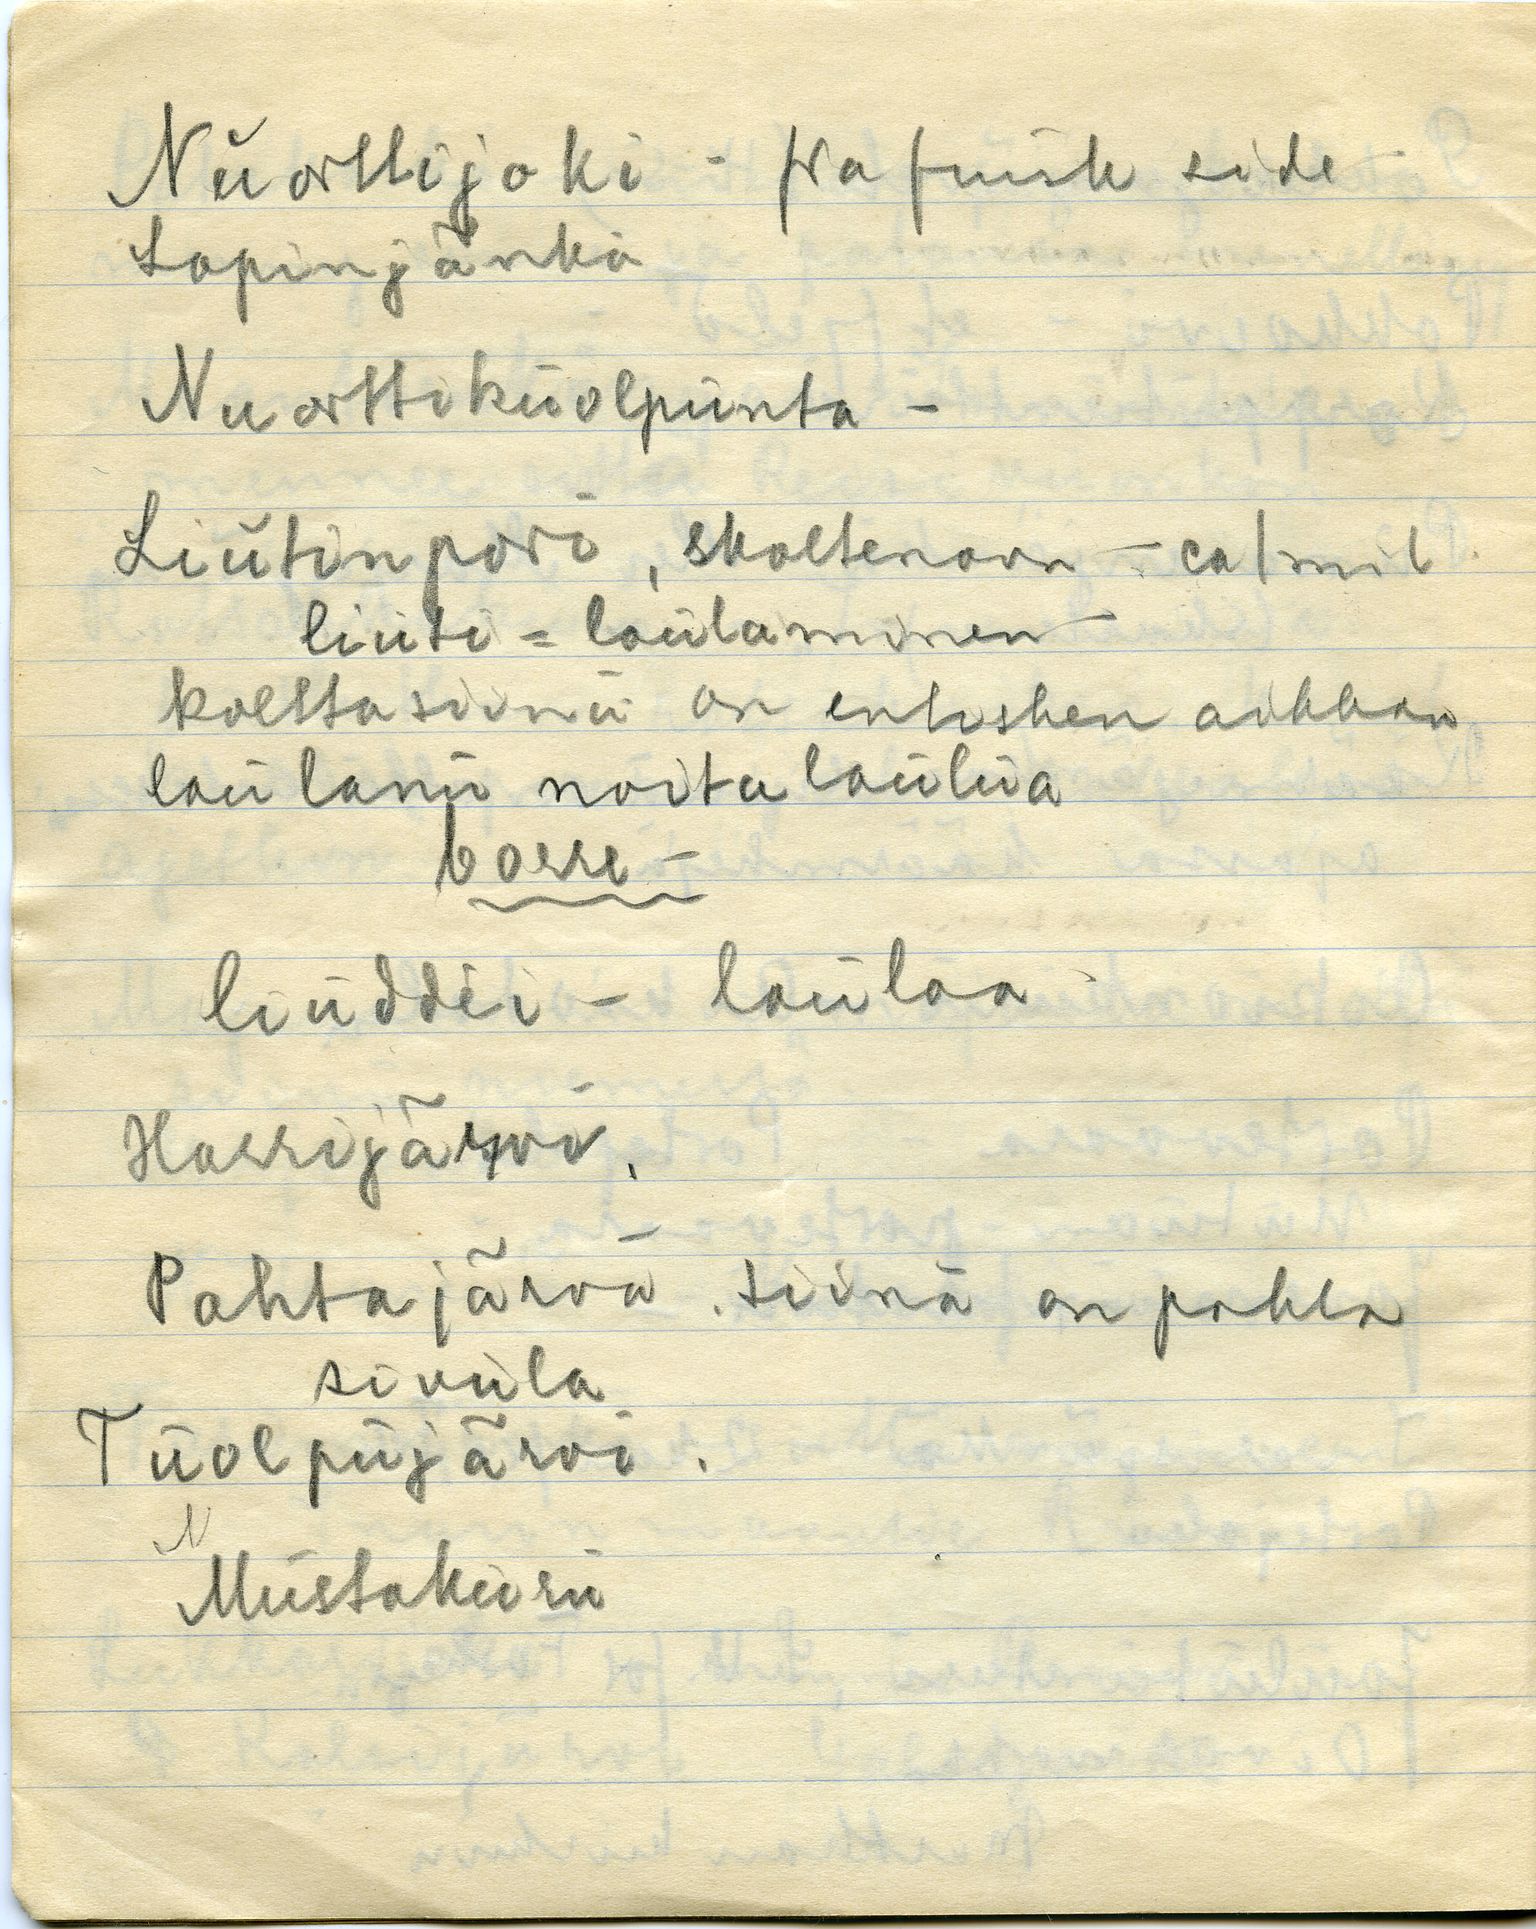 Nuorttijoki - fra finsk side
Lapinjänkä
Nuorttikuolpunta -
Liutinpovi, skoltenavn - ca 1 mil.
liuti = laulaminen
kolttasiinu on entishen aikhan
laulanu noitalaulua
liuddëi - laulaa
Harrijärvi.
Pahtajärvi. siinä on pahta
sivula
Tuolpujärvi.
N
Mustakuru